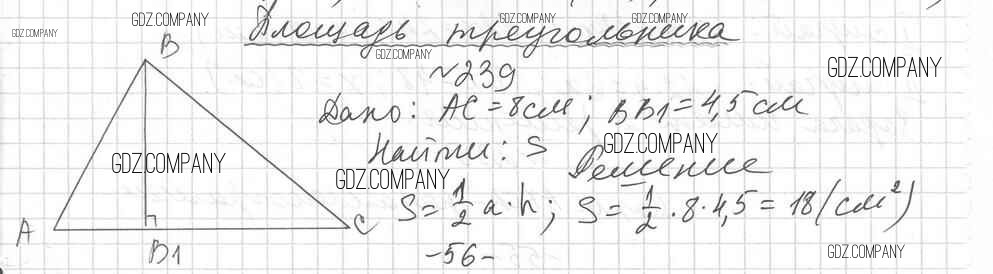 GDZ.COMPANY
GDZ.COMPANY GDZ.COMPANY GDZ.COMPANY
Площадь треугольника
GDZ.COMPANY
B
№239
GDZ.COMPANY
Дано: AC = 8см; BB1 = 4,5 см
Найти: S
GDZ.COMPANY
GDZ.COMPANY
Решение
GDZ.COMPANY
S = 1/2 a·h; S = 1/2 · 8 · 4,5 = 18 (см²)
A
B1
C
-56-
GDZ.COMPANY